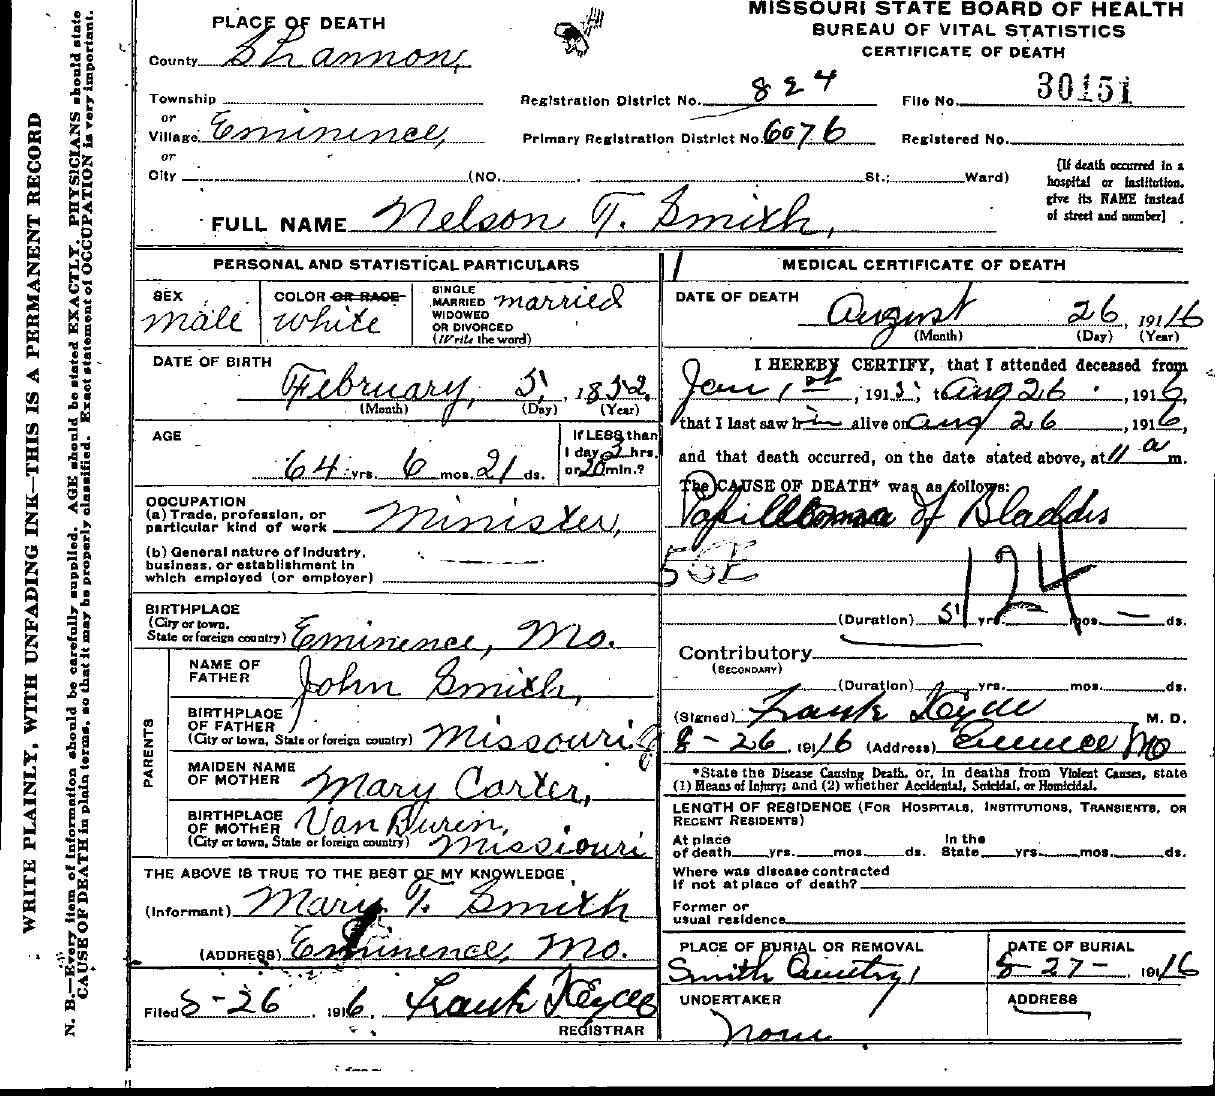 WRITE PLAINLY, WITH UNFADING INK—THIS IS A PERMANENT RECORD
N. B.—Every item of information should be carefully supplied. AGE should be stated EXACTLY. PHYSICIANS should state
CAUSE OF DEATH in plain terms, so that it may be properly classified. Exact statement of OCCUPATION is very important.
MISSOURI STATE BOARD OF HEALTH
BUREAU OF VITAL STATISTICS
CERTIFICATE OF DEATH
PLACE OF DEATH
County Shannon,
Township
or
Village Eminence,
or
City (NO. St.; Ward)
Registration District No. 824 File No. 30151
Primary Registration District No. 6076 Registered No.
[If death occurred in a
hospital or institution,
give its NAME instead
of street and number]
FULL NAME Nelson T. Smith,
PERSONAL AND STATISTICAL PARTICULARS
SEX male
COLOR OR RACE white
SINGLE
MARRIED
WIDOWED
OR DIVORCED
(Write the word) married
DATE OF BIRTH
February, 5, 1852
(Month) (Day) (Year)
AGE
64 yrs. 6 mos. 21 ds.
If LESS than
1 day 3 hrs.
or 20 min.?
OCCUPATION
(a) Trade, profession, or
particular kind of work Minister,
(b) General nature of industry,
business, or establishment in
which employed (or employer)
BIRTHPLACE
(City or town,
State or foreign country) Eminence, Mo.
PARENTS
NAME OF
FATHER John Smith,
BIRTHPLACE
OF FATHER
(City or town, State or foreign country) Missouri
MAIDEN NAME
OF MOTHER Mary Carter,
BIRTHPLACE
OF MOTHER
(City or town, State or foreign country) Van Buren, Missiouri
THE ABOVE IS TRUE TO THE BEST OF MY KNOWLEDGE
(Informant) Mary T. Smith
(ADDRESS) Eminence, Mo.
Filed 8-26, 1916, Frank
REGISTRAR
MEDICAL CERTIFICATE OF DEATH
DATE OF DEATH
August 26, 191 16
(Month) (Day) (Year)
I HEREBY CERTIFY, that I attended deceased from
Jan 1st, 1915, to Aug 26, 1916,
that I last saw him alive on Aug 26, 1916,
and that death occurred, on the date stated above, at 11 a m.
The CAUSE OF DEATH* was as follows:
Papilloma of Bladder
124
(Duration) 5 yrs. mos. — ds.
Contributory
(SECONDARY)
(Duration) yrs. mos. ds.
(Signed) Frank M. D.
8-26, 191 16 (Address) Eminence Mo
*State the Disease Causing Death, or, in deaths from Violent Causes, state
(1) Means of Injury; and (2) whether Accidental, Suicidal, or Homicidal.
LENGTH OF RESIDENCE (FOR HOSPITALS, INSTITUTIONS, TRANSIENTS, OR
RECENT RESIDENTS)
At place
of death yrs. mos. ds.
In the
State yrs. mos. ds.
Where was disease contracted
If not at place of death?
Former or
usual residence
PLACE OF BURIAL OR REMOVAL
Smith Cemetry,
DATE OF BURIAL
8-27-, 191 16
UNDERTAKER
None
ADDRESS